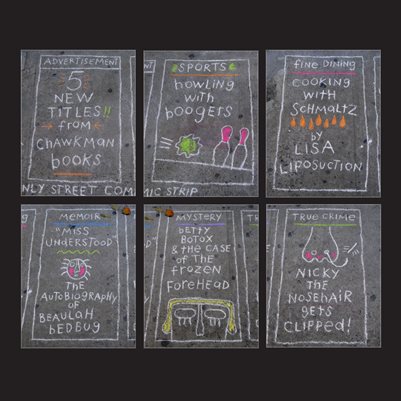 ADVERTISEMENT
5
NEW
TITLES!!
from
CHAWKMAN
books
SPORTS
howling
with
boogers
fine DINING
COOKING
WITH
SCHMALTZ
by
LISA
LIPOSUCTION
NLY STREET COM
MIC STRIP
MEMOIR
"MISS
UNDERSTOOD"
THE
AUTOBIOGRAPHY
OF
BEAULAH
bEDBUG
MYSTERY
bETTY
BOTOX
& THE CASE
OF THE
frozen
foreHEAD
TRUE CRIME
NICKY
THE
NOSEHAIR
GETS
CLIPPED!